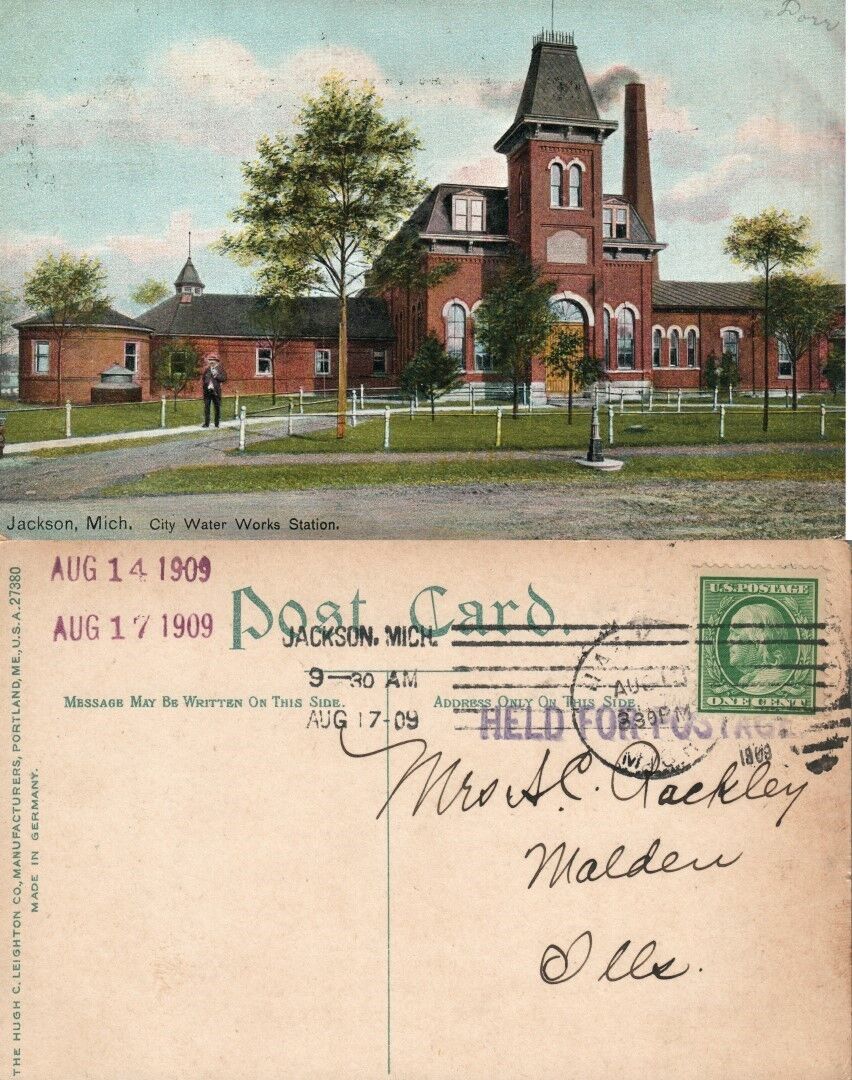 Dorr
Jackson, Mich. City Water Works Station.
AUG 14 1909
AUG 17 1909
Post Card.
JACKSON, MICH.
9-30 AM
AUG 17-09
MESSAGE MAY BE WRITTEN ON THIS SIDE.
ADDRESS ONLY ON THIS SIDE.
HELD FOR POSTAGE
U.S. POSTAGE
ONE CENT
AUG
330PM
1909
Mrs A.C. Packley
Malden
Ills.
THE HUGH C. LEIGHTON CO., MANUFACTURERS, PORTLAND, ME., U.S.A. 27380
MADE IN GERMANY.